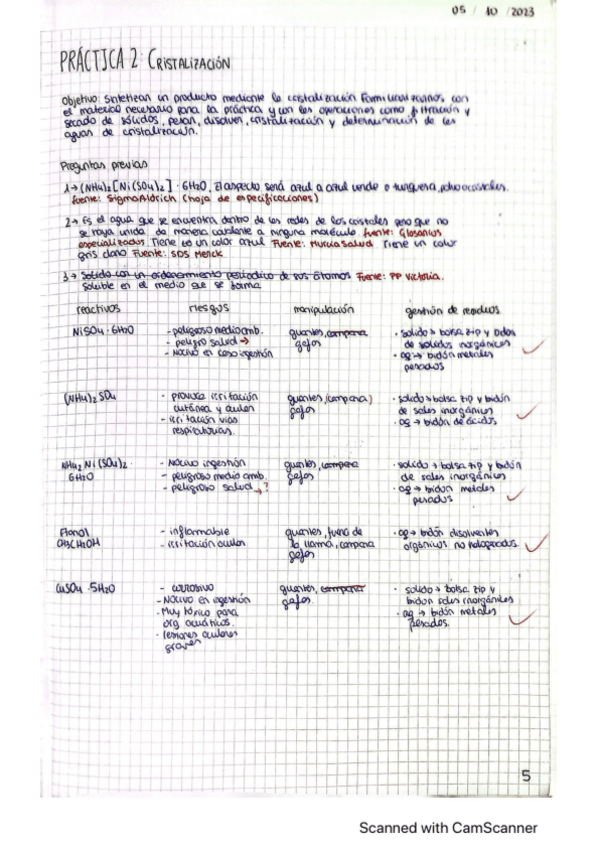 05 / 10 / 2023
PRÁCTICA 2: CRISTALIZACIÓN
Objetivo: Sintetizar un producto mediante la cristalización. Familiarizarnos con
el material necesario para la práctica y con las operaciones como filtración y
secado de sólidos, pesar, disolver, cristalización y determinación de las
aguas de cristalización.
Preguntas previas
1→ (NH4)2[Ni(SO4)2]·6H2O, El aspecto será azul a azul verde o turquesa,
fuente: Sigma Aldrich (hoja de especificaciones)
2→ Es el agua que se encuentra dentro de las redes de los cristales pero que no
se haya unida de manera covalente a ninguna molécula fuente: Glosarios
especializados Tiene es un color azul Fuente: Murcia Salud Tiene un color
gris claro Fuente: SDS Merck
3→ Solido con un ordenamiento periódico de sus átomos Fuente: PP Victoria.
Soluble en el medio que se forma
reactivos riesgos manipulación gestión de residuos
NiSO4·6H2O - peligroso medio amb. guantes, campana · solido → bolsa zip y bidón
- peligro salud → gafas de solidos inorgánicos
- Nocivo en caso ingestión · aq → bidón metales
pesados
(NH4)2SO4 · provoca irritación guantes, campana) · solido → bolsa zip y bidón
cutánea y ocular gafas de sales inorgánicos
- irritación vías · aq → bidón de ácidos
respiratorias.
NH42Ni(SO4)2· - Nocivo ingestión guantes, campana · solido → bolsa zip y bidón
6H2O - peligroso medio amb. gafas de sales inorgánicos
- peligroso salud →? · aq → bidon metales
pesados
Etanol - inflamable guantes, fuera de · aq → bidón disolventes
CH3CH2OH - irritación ocular la llama, campana orgánicos no halogenados.
gafas
CuSO4·5H2O - corrosivo guantes, campana · solido → bolsa zip y
- Nocivo en ingestión gafas. bidon sales inorgánicos
- Muy tóxico para · aq → bidón metales
org acuáticos. pesados.
- lesiones oculares
graves
5
Scanned with CamScanner